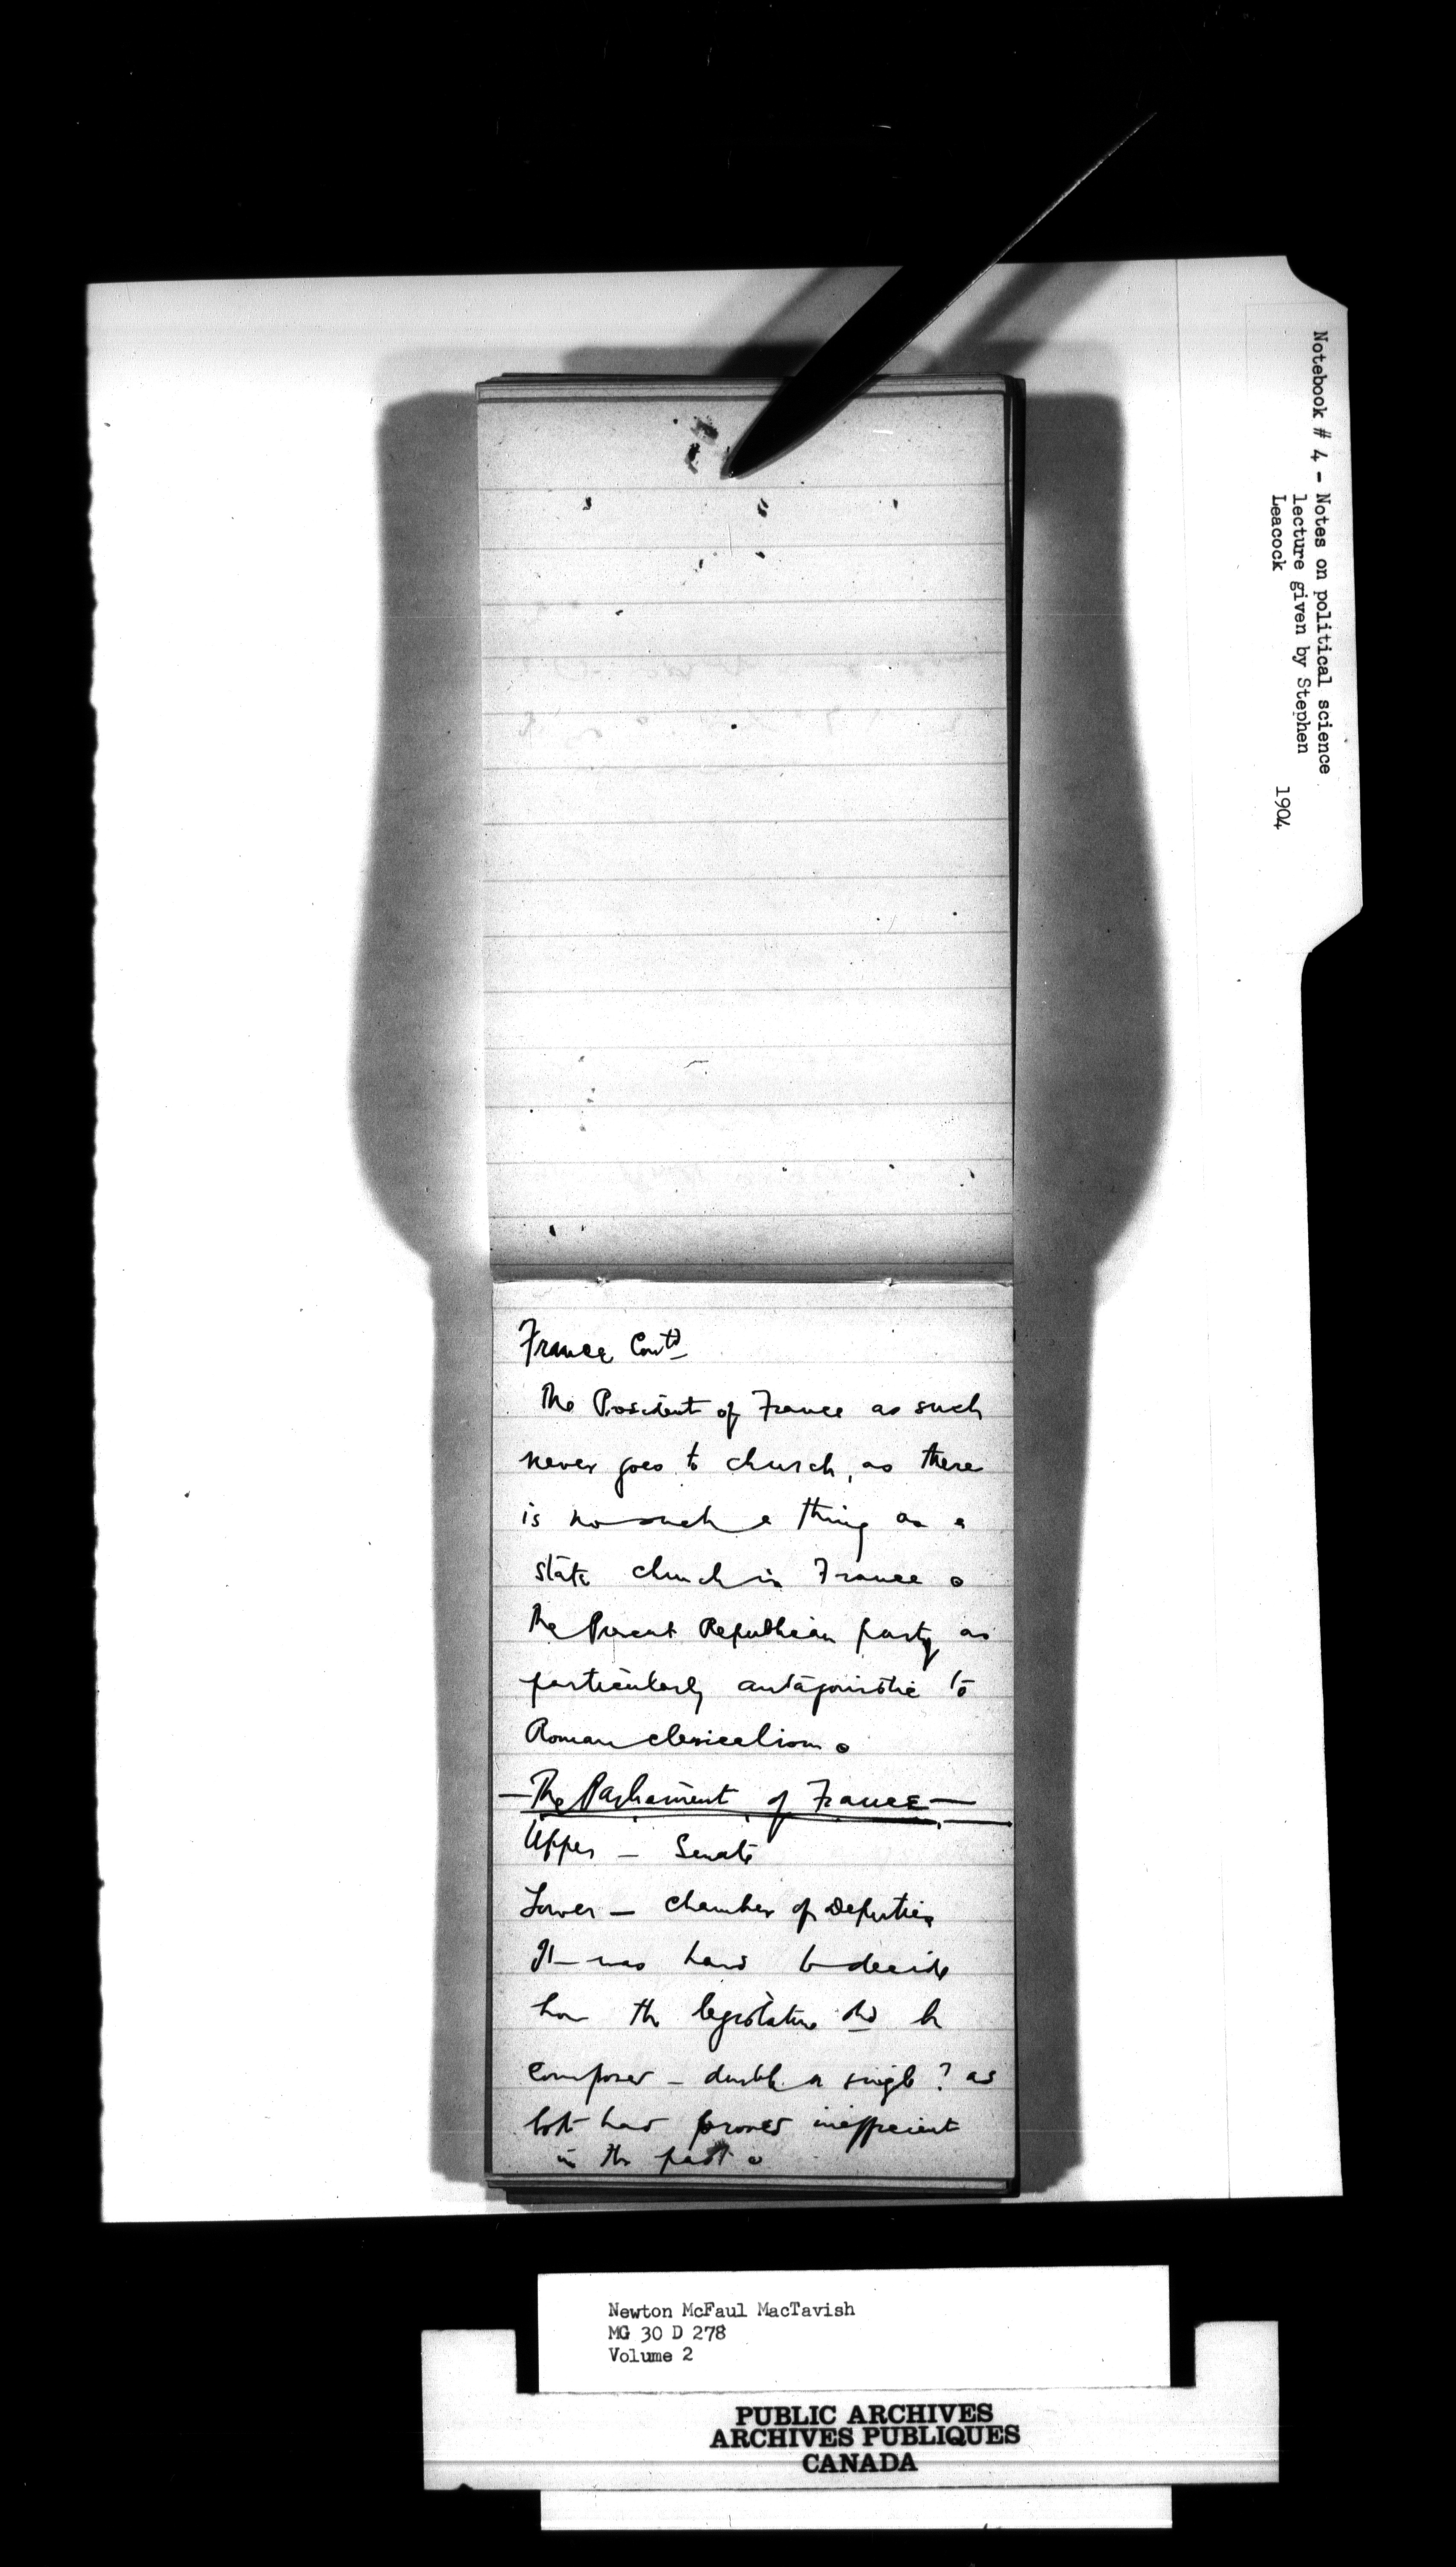 Notebook # 4 - Notes on political science
lecture given by Stephen
Leacock 1904
France Contd
The President of France as such
never goes to church, as there
is no such a thing as a
state church in France.
The Present Republican party as
particularly antagonistic to
Roman clericalism.
— The Parliament of France —
Upper — Senate
Lower — Chamber of Deputies
It was hard to decide
how the legislature shd be
composed — double or single? as
both had proved inefficient
in the past.
Newton McFaul MacTavish
MG 30 D 278
Volume 2
PUBLIC ARCHIVES
ARCHIVES PUBLIQUES
CANADA